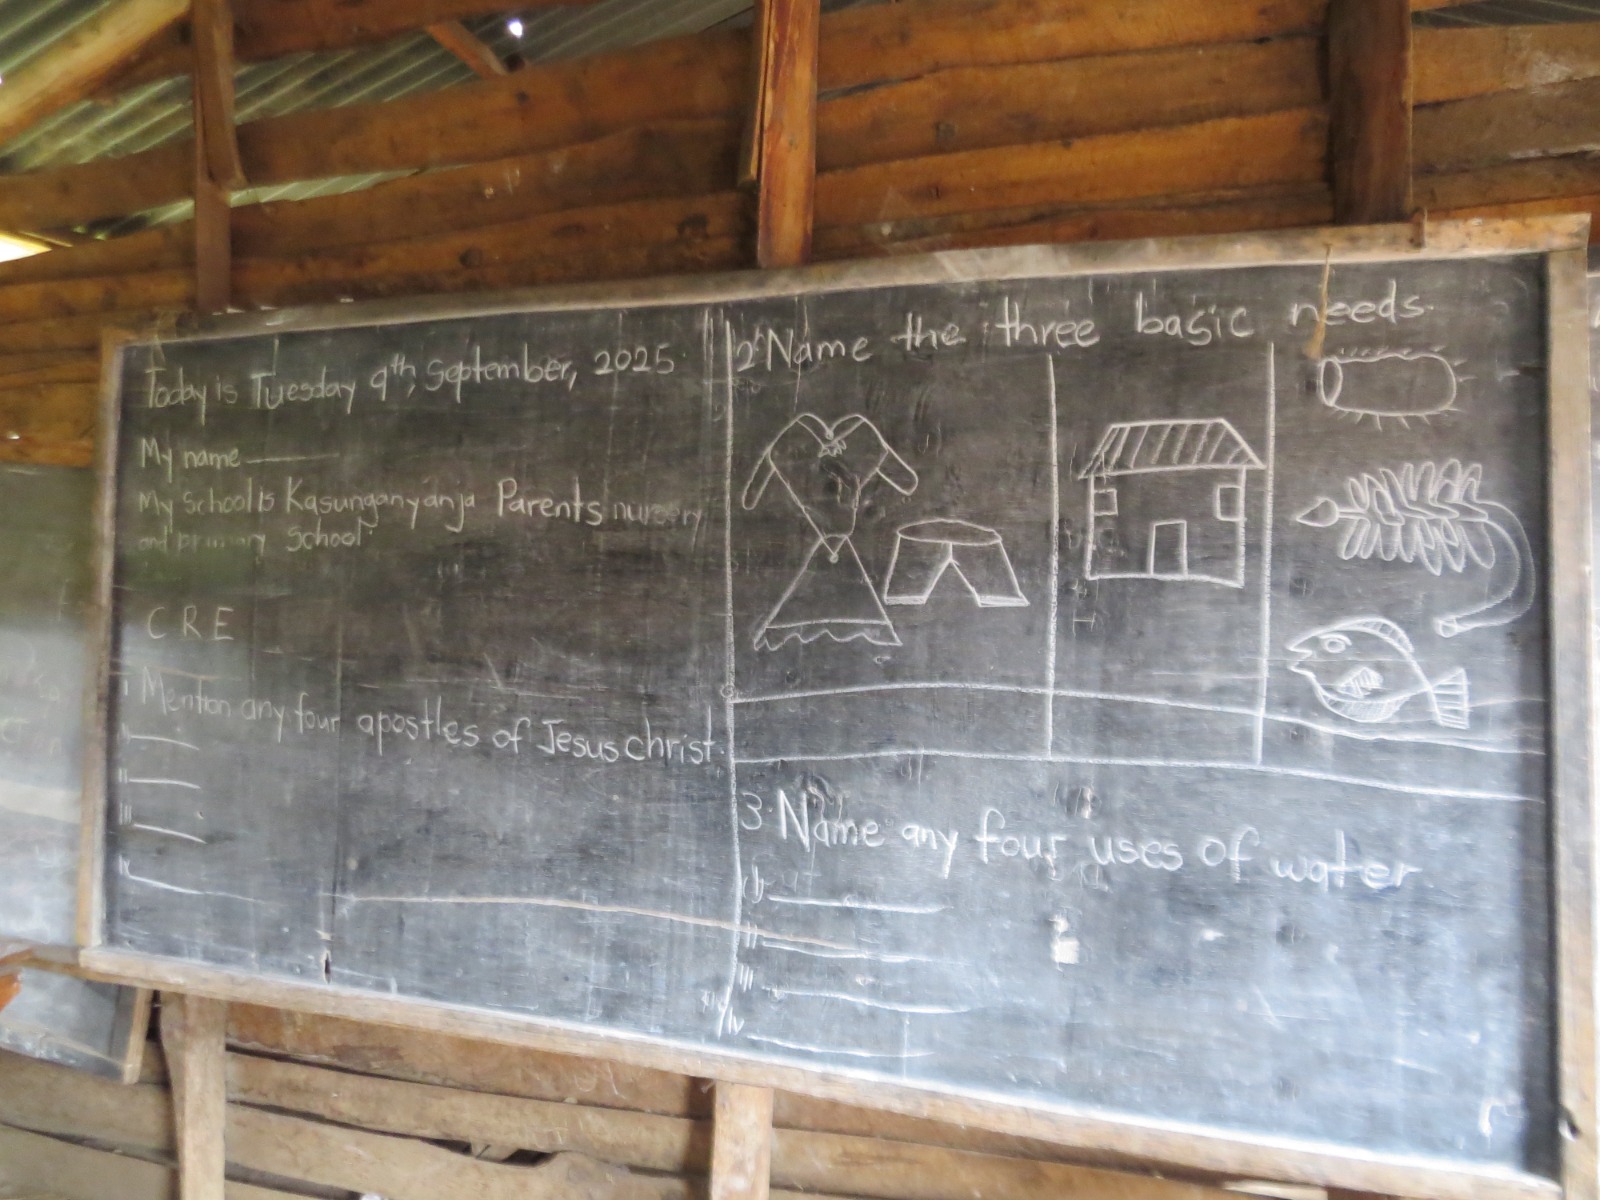 Today is Tuesday 9th, September, 2025.
My name
My School is Kasunganyanja Parents nursery
and primary School.
C R E
1 Mention any four apostles of Jesus christ.
i
ii
iii
iv
2. Name the three basic needs.
3. Name any four uses of water
i
ii
iii
iv